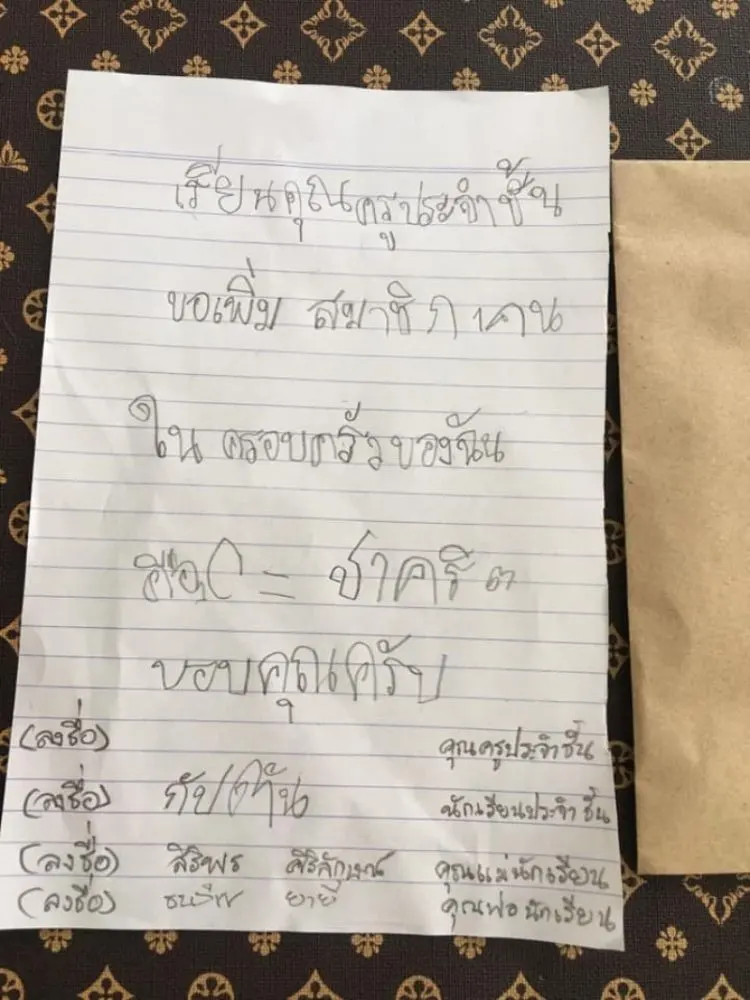 เรียนคุณครูประจำชั้น
ขอเพิ่ม สมาชิก 1 คน
ใน ครอบครัวของฉัน
คือ = ชาคริต
ขอบคุณครับ
(ลงชื่อ) คุณครูประจำชั้น
(ลงชื่อ) กัปตัน นักเรียนประจำชั้น
(ลงชื่อ) สิริพร ศิริลักษณ์ คุณแม่นักเรียน
(ลงชื่อ) คุณพ่อนักเรียน